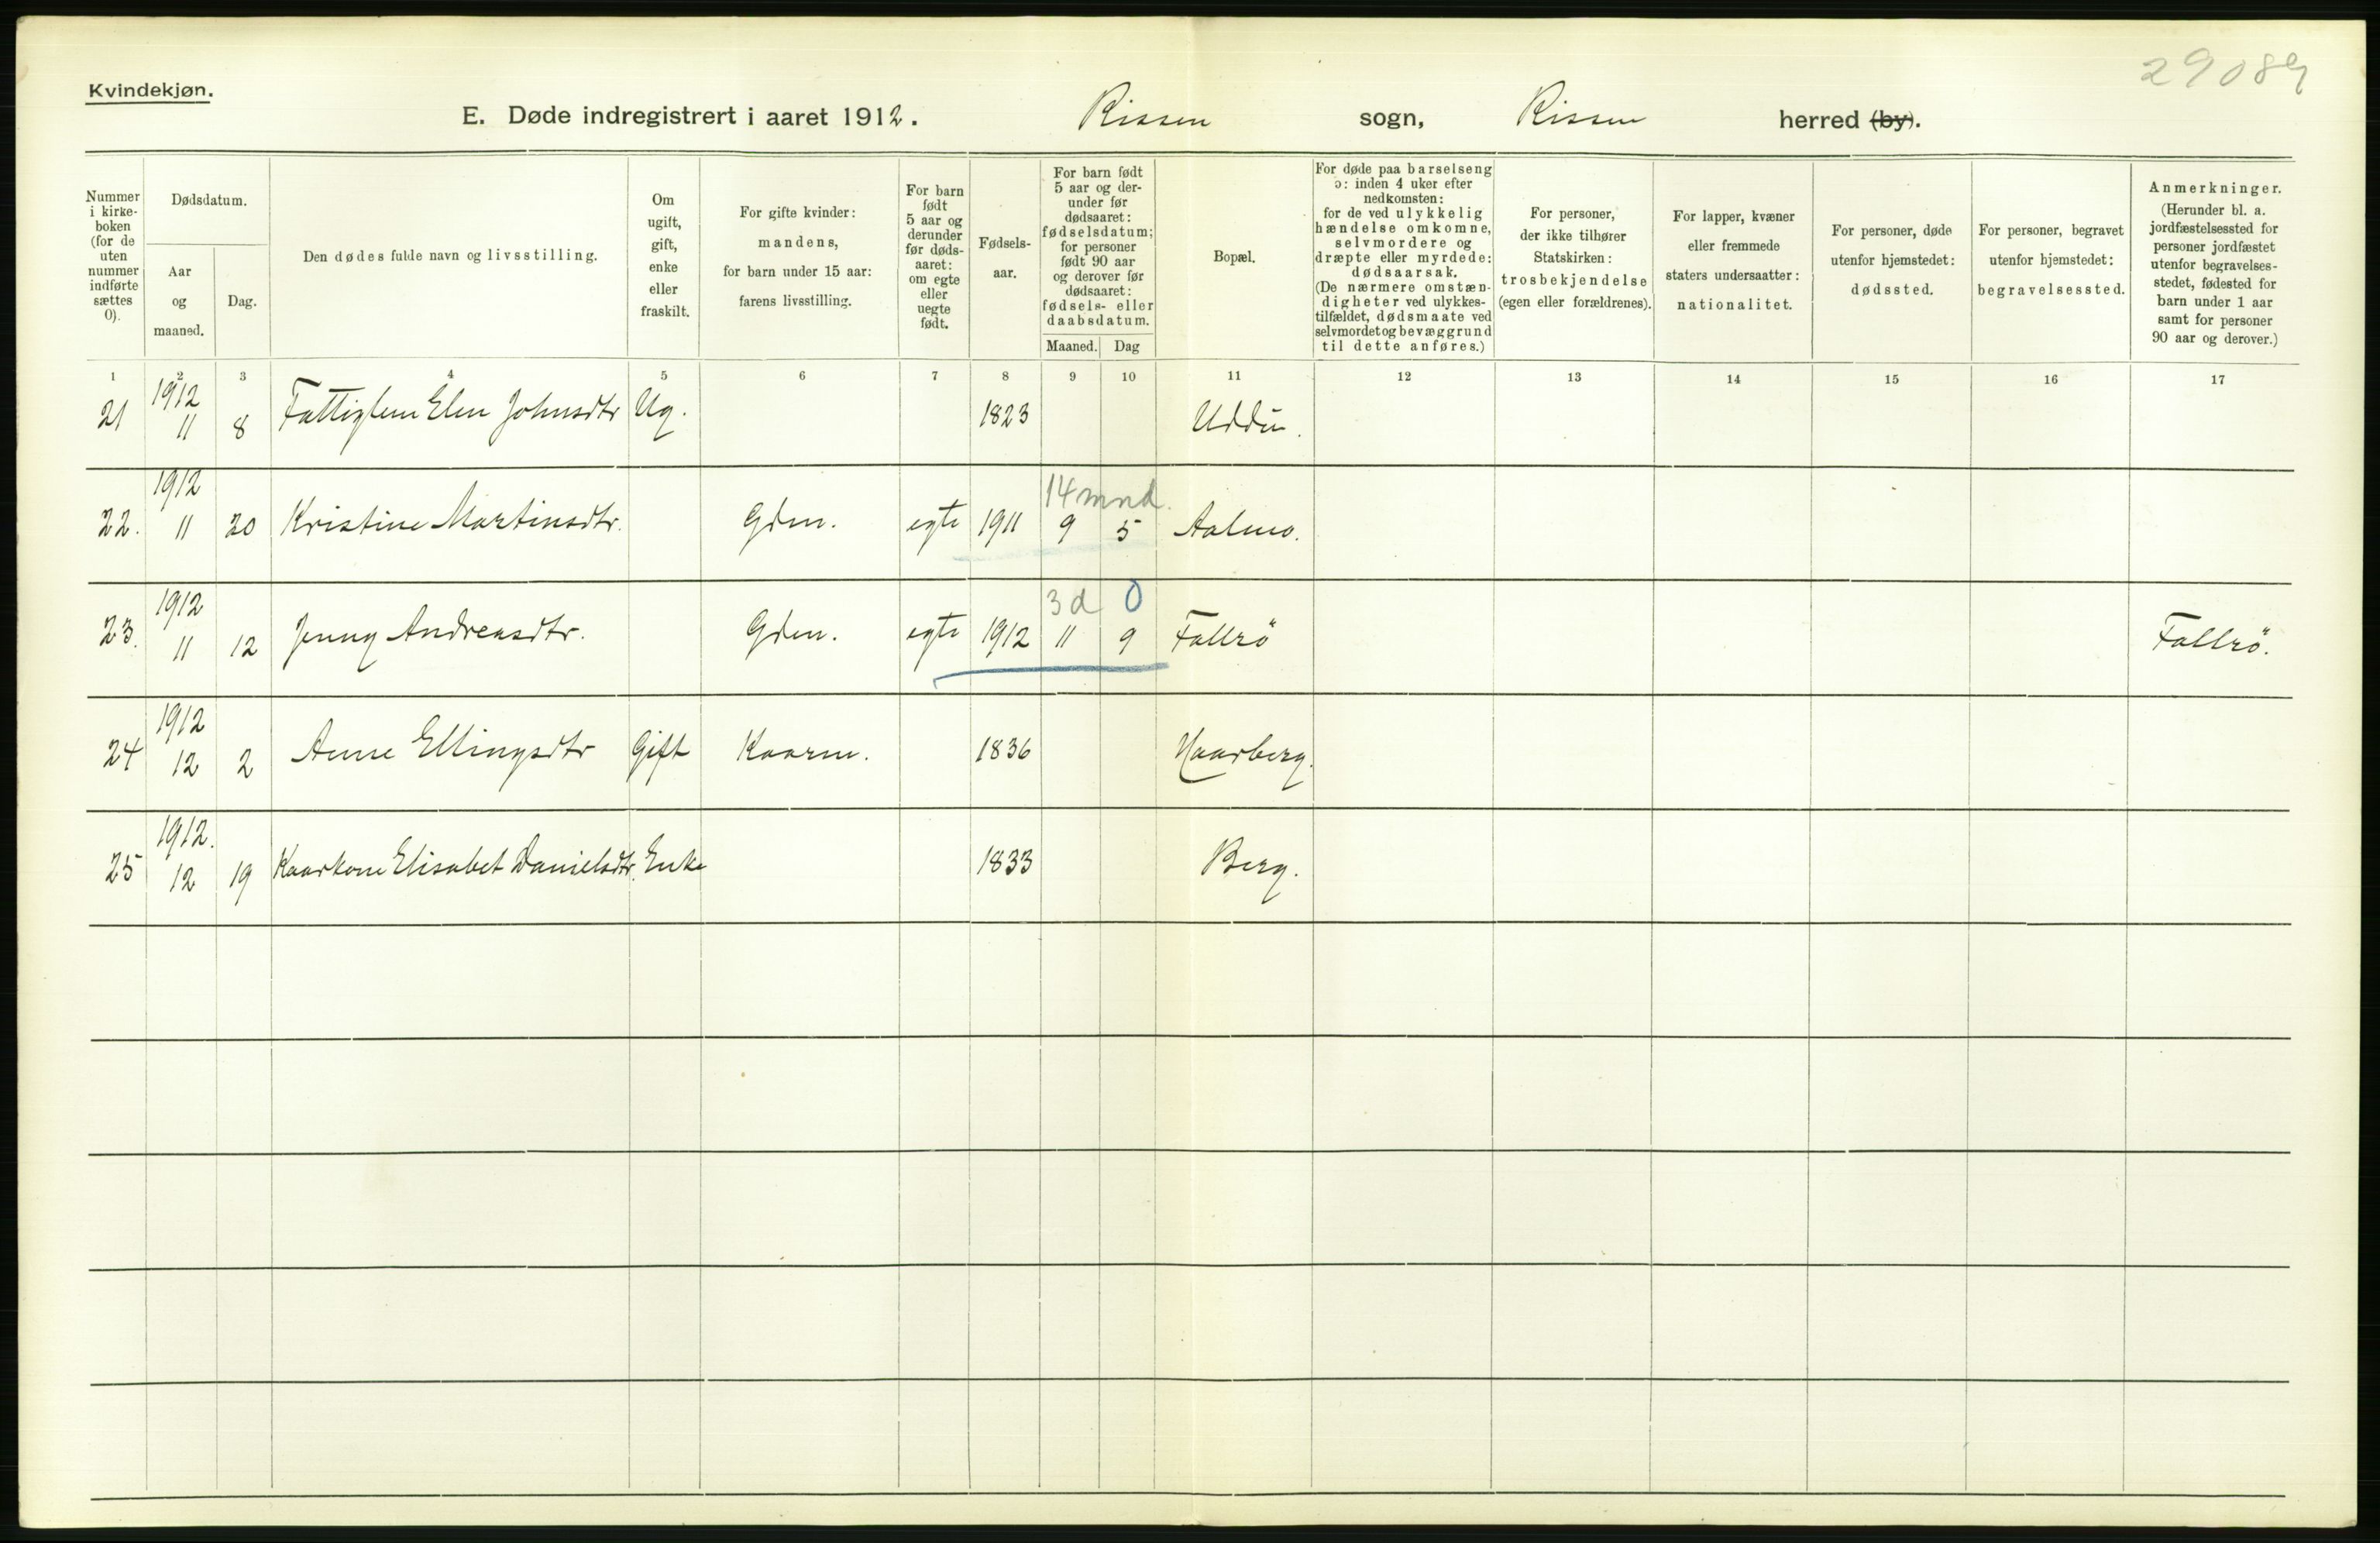 29089
Kvindekjøn.
E. Døde indregistrert i aaret 1912. Rissen sogn, Rissen herred (by).
Nummer
i kirke-
boken
(for de
uten
nummer
indførte
sættes
0).
Dødsdatum.
Aar
og
maaned.
Dag.
Den dødes fulde navn og livsstilling.
Om
ugift,
gift,
enke
eller
fraskilt.
For gifte kvinder:
mandens,
for barn under 15 aar:
farens livsstilling.
For barn
født
5 aar og
derunder
før døds-
aaret:
om egte
eller
uegte
født.
Fødsels-
aar.
For barn født
5 aar og der-
under før
dødsaaret:
fødselsdatum;
for personer
født 90 aar
og derover før
dødsaaret:
fødsels- eller
daabsdatum.
Maaned. Dag
Bopæl.
For døde paa barselseng
ɔ: inden 4 uker efter
nedkomsten:
for de ved ulykkelig
hændelse omkomne,
selvmordere og
dræpte eller myrdede:
dødsaarsak.
(De nærmere omstæn-
digheter ved ulykkes-
tilfældet, dødsmaate ved
selvmordet og bevæggrund
til dette anføres.)
For personer,
der ikke tilhører
Statskirken:
trosbekjendelse
(egen eller forældrenes).
For lapper, kvæner
eller fremmede
staters undersaatter:
nationalitet.
For personer, døde
utenfor hjemstedet:
dødssted.
For personer, begravet
utenfor hjemstedet:
begravelsessted.
Anmerkninger.
(Herunder bl. a.
jordfæstelsessted for
personer jordfæstet
utenfor begravelses-
stedet, fødested for
barn under 1 aar
samt for personer
90 aar og derover.)
1 2 3 4 5 6 7 8 9 10 11 12 13 14 15 16 17
1912
21 11 8 Fattiglem Elen Johnsdtr Ug. 1823 Udduin.
1912 14 mnd.
22. 11 20 Kristine Martinsdtr. Gdm. egte 1911 9 5 Aalmo.
1912 3 d 0
23. 11 12 Jenny Andreasdtr. Gdm. egte 1912 11 9 Fallrö Fallrö.
1912
24 12 2 Anne Ellingsdtr Gift Kaarm. 1836 Haarberg.
1912.
25 12 19 Kaarkone Elisabet Danielsdtr. Enke 1833 Berg.